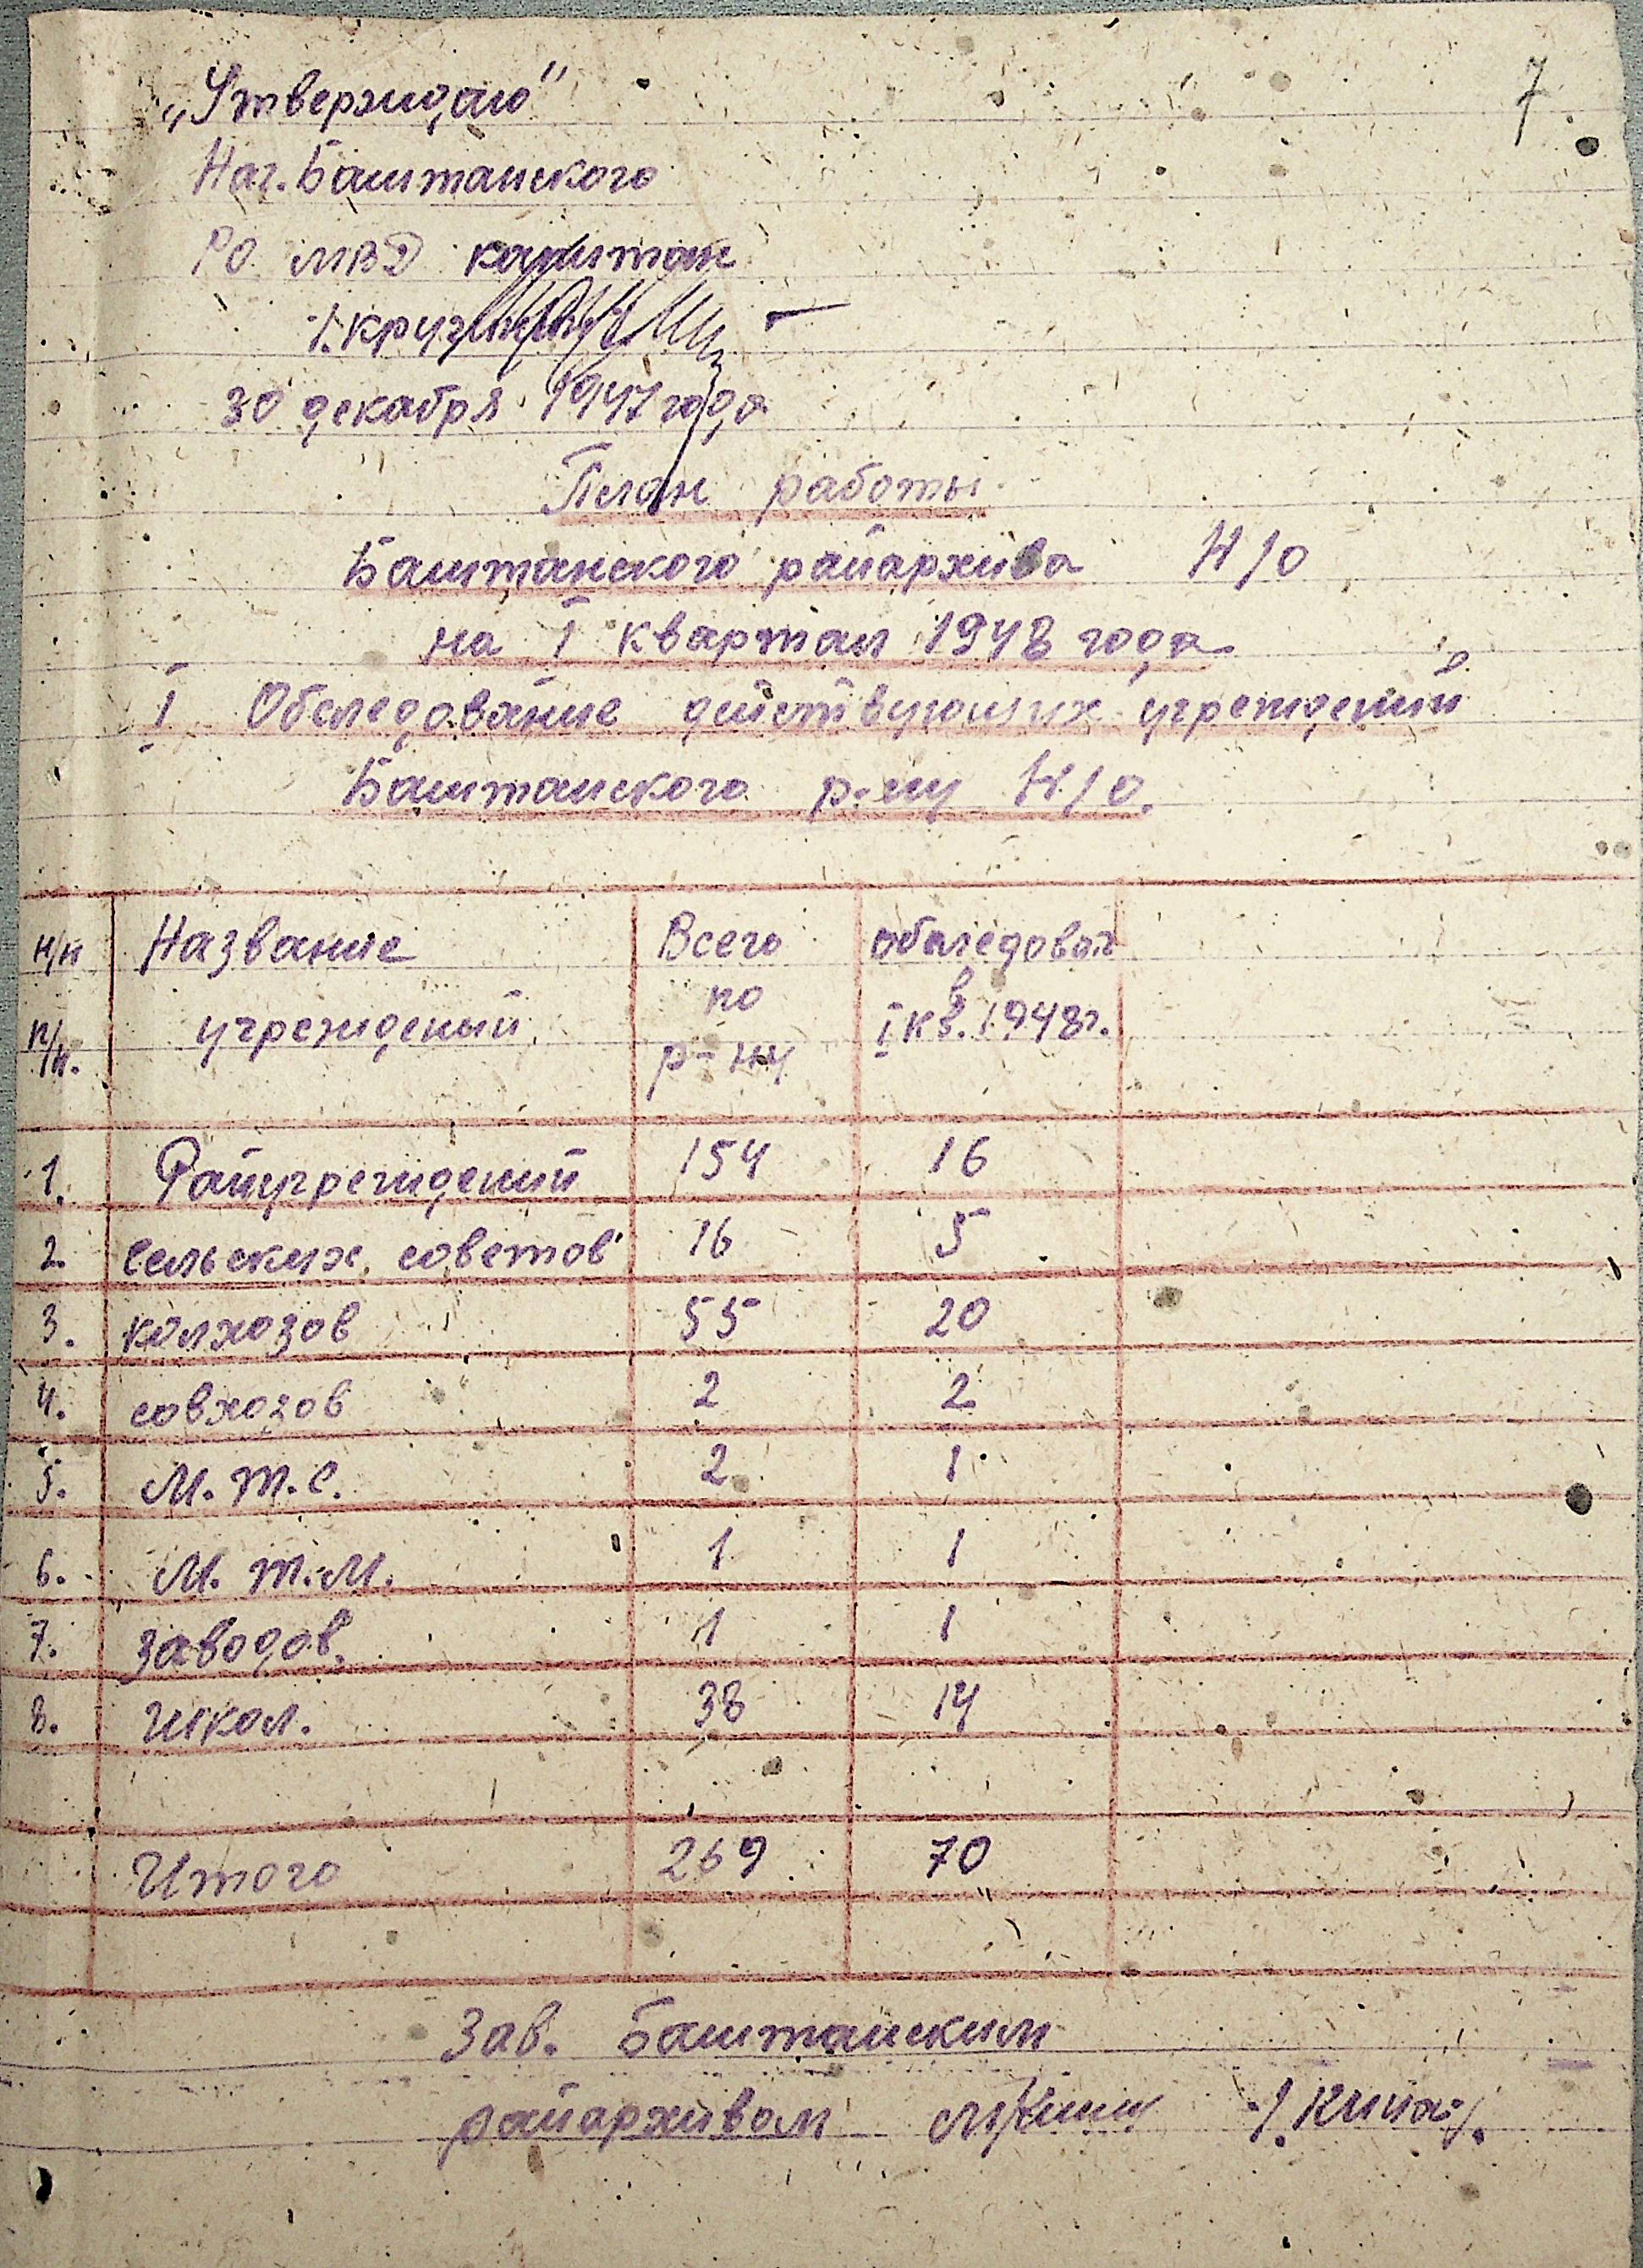 7
„Утверждаю"
Нач. Баштанского
РО МВД капитан
30 декабря 1947 года
План работы
Баштанского райархива Н/О
на I квартал 1948 года
I Обследование действующих учреждений
Баштанского р-ну Н/О.
н/н Название Всего обследоват
в
п/п. учреждений по I кв. 1948г.
р-ну
1. Райучреждений 154 16
2. сельских советов 16 5
3. колхозов 55 20
4. совхозов 2 2
5. М.Т.С. 2 1
6. М.Т.М. 1 1
7. заводов. 1 1
8. школ. 38 14
Итого 269 70
Зав. Баштанским
райархивом /Кипа/.